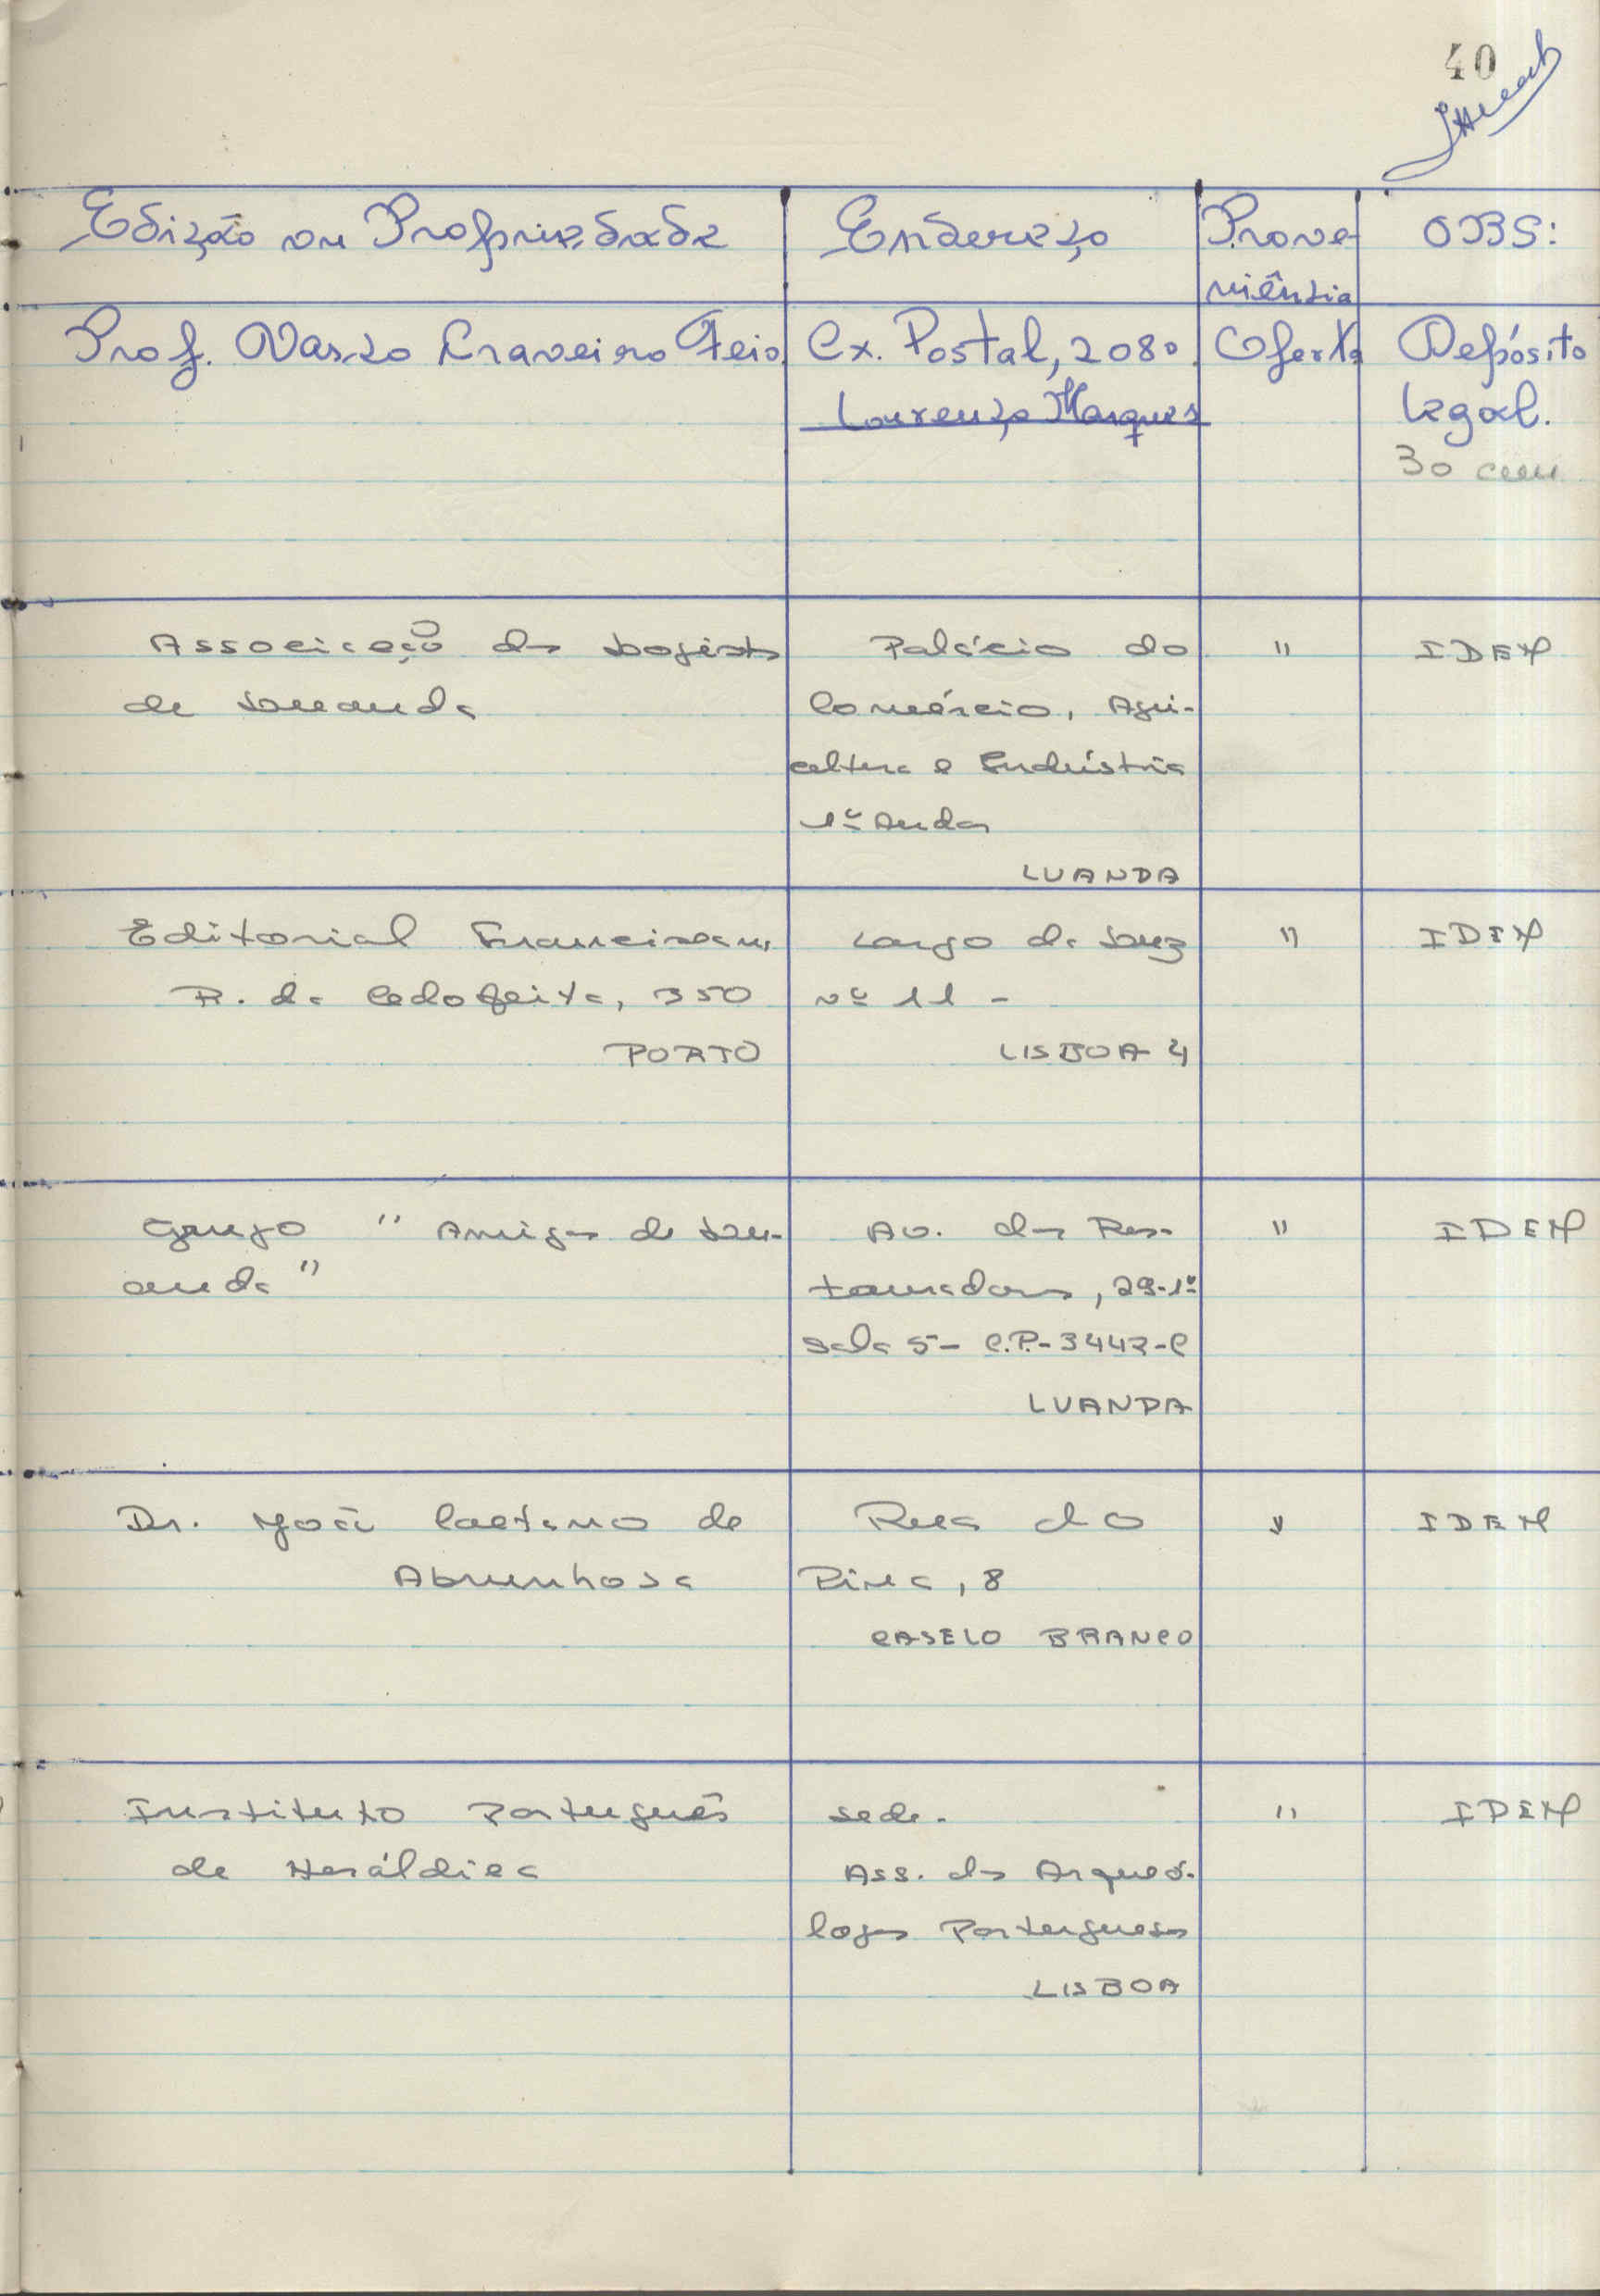 40
Edição ou Propriedade
Endereço
Prove-
niência
OBS:
Prof. Vasco Craveiro Feio
Cx. Postal, 2080
Lourenço Marques
Oferta
Depósito
Legal.
30 cm
Associação dos Logistas
de Luanda
Palácio do
Comércio, Agri-
cultura e Indústria
1º Andar
LUANDA
"
IDEM
Editorial Franciscana
R. de Cedofeita, 350
PORTO
Largo da Luz
nº 11 -
LISBOA 4
"
IDEM
Grupo "Amigos de Lu-
anda"
Av. dos Res-
tauradores, 29-1º
Sala 5 - C.P.-3443-C
LUANDA
"
IDEM
Dr. José Caetano de
Abrunhosa
Rua do
Pina, 8
CASELO BRANCO
"
IDEM
Instituto Português
de Heráldica
sede.
Ass. dos Arqueó-
logos Portugueses
LISBOA
"
IDEM